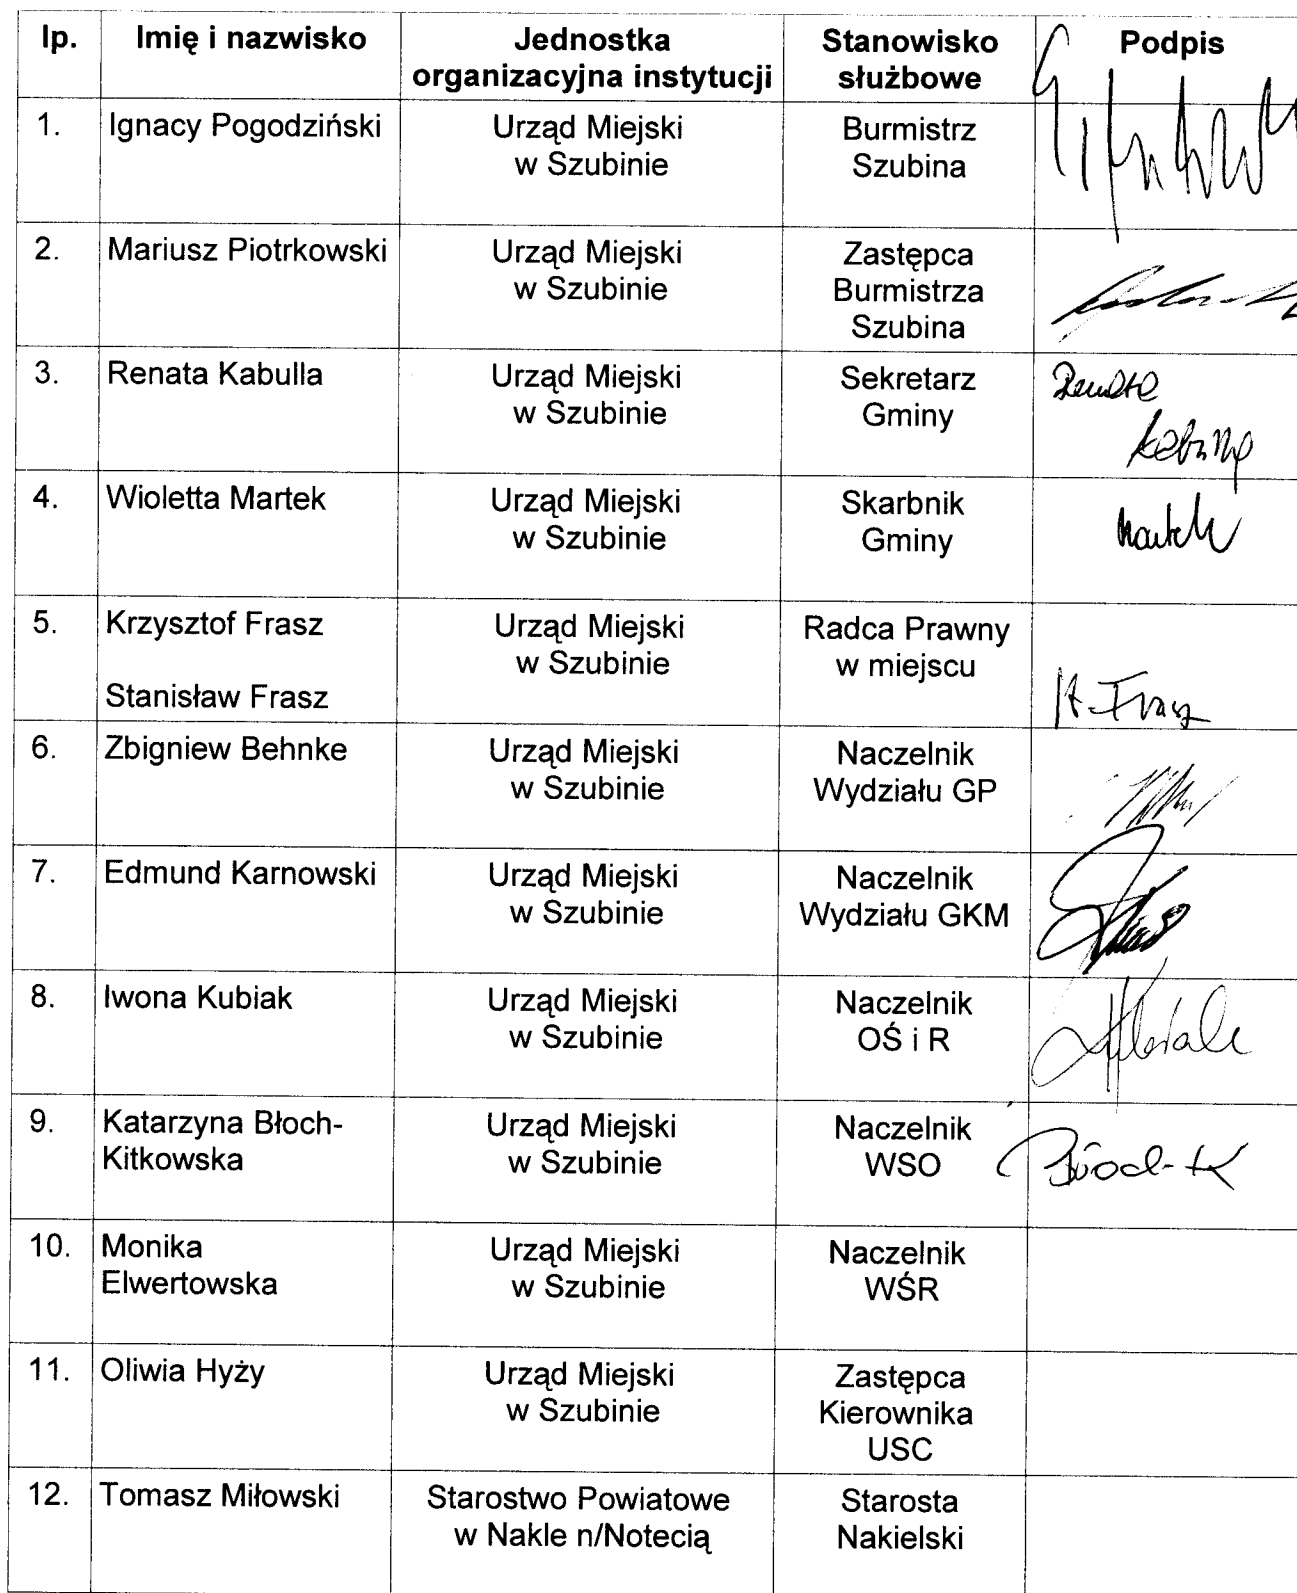 lp. Imię i nazwisko Jednostka organizacyjna instytucji Stanowisko służbowe Podpis
1. Ignacy Pogodziński Urząd Miejski w Szubinie Burmistrz Szubina
2. Mariusz Piotrkowski Urząd Miejski w Szubinie Zastępca Burmistrza Szubina
3. Renata Kabulla Urząd Miejski w Szubinie Sekretarz Gminy
4. Wioletta Martek Urząd Miejski w Szubinie Skarbnik Gminy Martek
5. Krzysztof Frasz Stanisław Frasz Urząd Miejski w Szubinie Radca Prawny w miejscu Frasz
6. Zbigniew Behnke Urząd Miejski w Szubinie Naczelnik Wydziału GP
7. Edmund Karnowski Urząd Miejski w Szubinie Naczelnik Wydziału GKM
8. Iwona Kubiak Urząd Miejski w Szubinie Naczelnik OŚ i R
9. Katarzyna Błoch-Kitkowska Urząd Miejski w Szubinie Naczelnik WSO
10. Monika Elwertowska Urząd Miejski w Szubinie Naczelnik WŚR
11. Oliwia Hyży Urząd Miejski w Szubinie Zastępca Kierownika USC
12. Tomasz Miłowski Starostwo Powiatowe w Nakle n/Notecią Starosta Nakielski